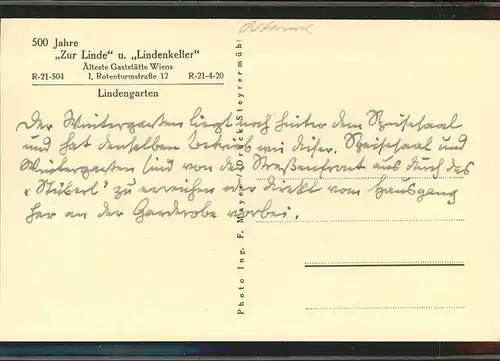 Österreich
500 Jahre
„Zur Linde“ u. „Lindenkeller“
Älteste Gaststätte Wiens
R-21-504 I, Rotenturmstraße 12 R-21-4-20
Lindengarten
Der Wintergarten liegt noch hinter dem Speisesaal
und hat denselben Betrieb wie dieser. Speisesaal und
Wintergarten sind von der Straßenfront aus durch das
„Stüberl“ zu erreichen oder direkt vom Hausgang
her an der Garderobe vorbei.
Photo Ing. F. Mayer, Steyrermühl